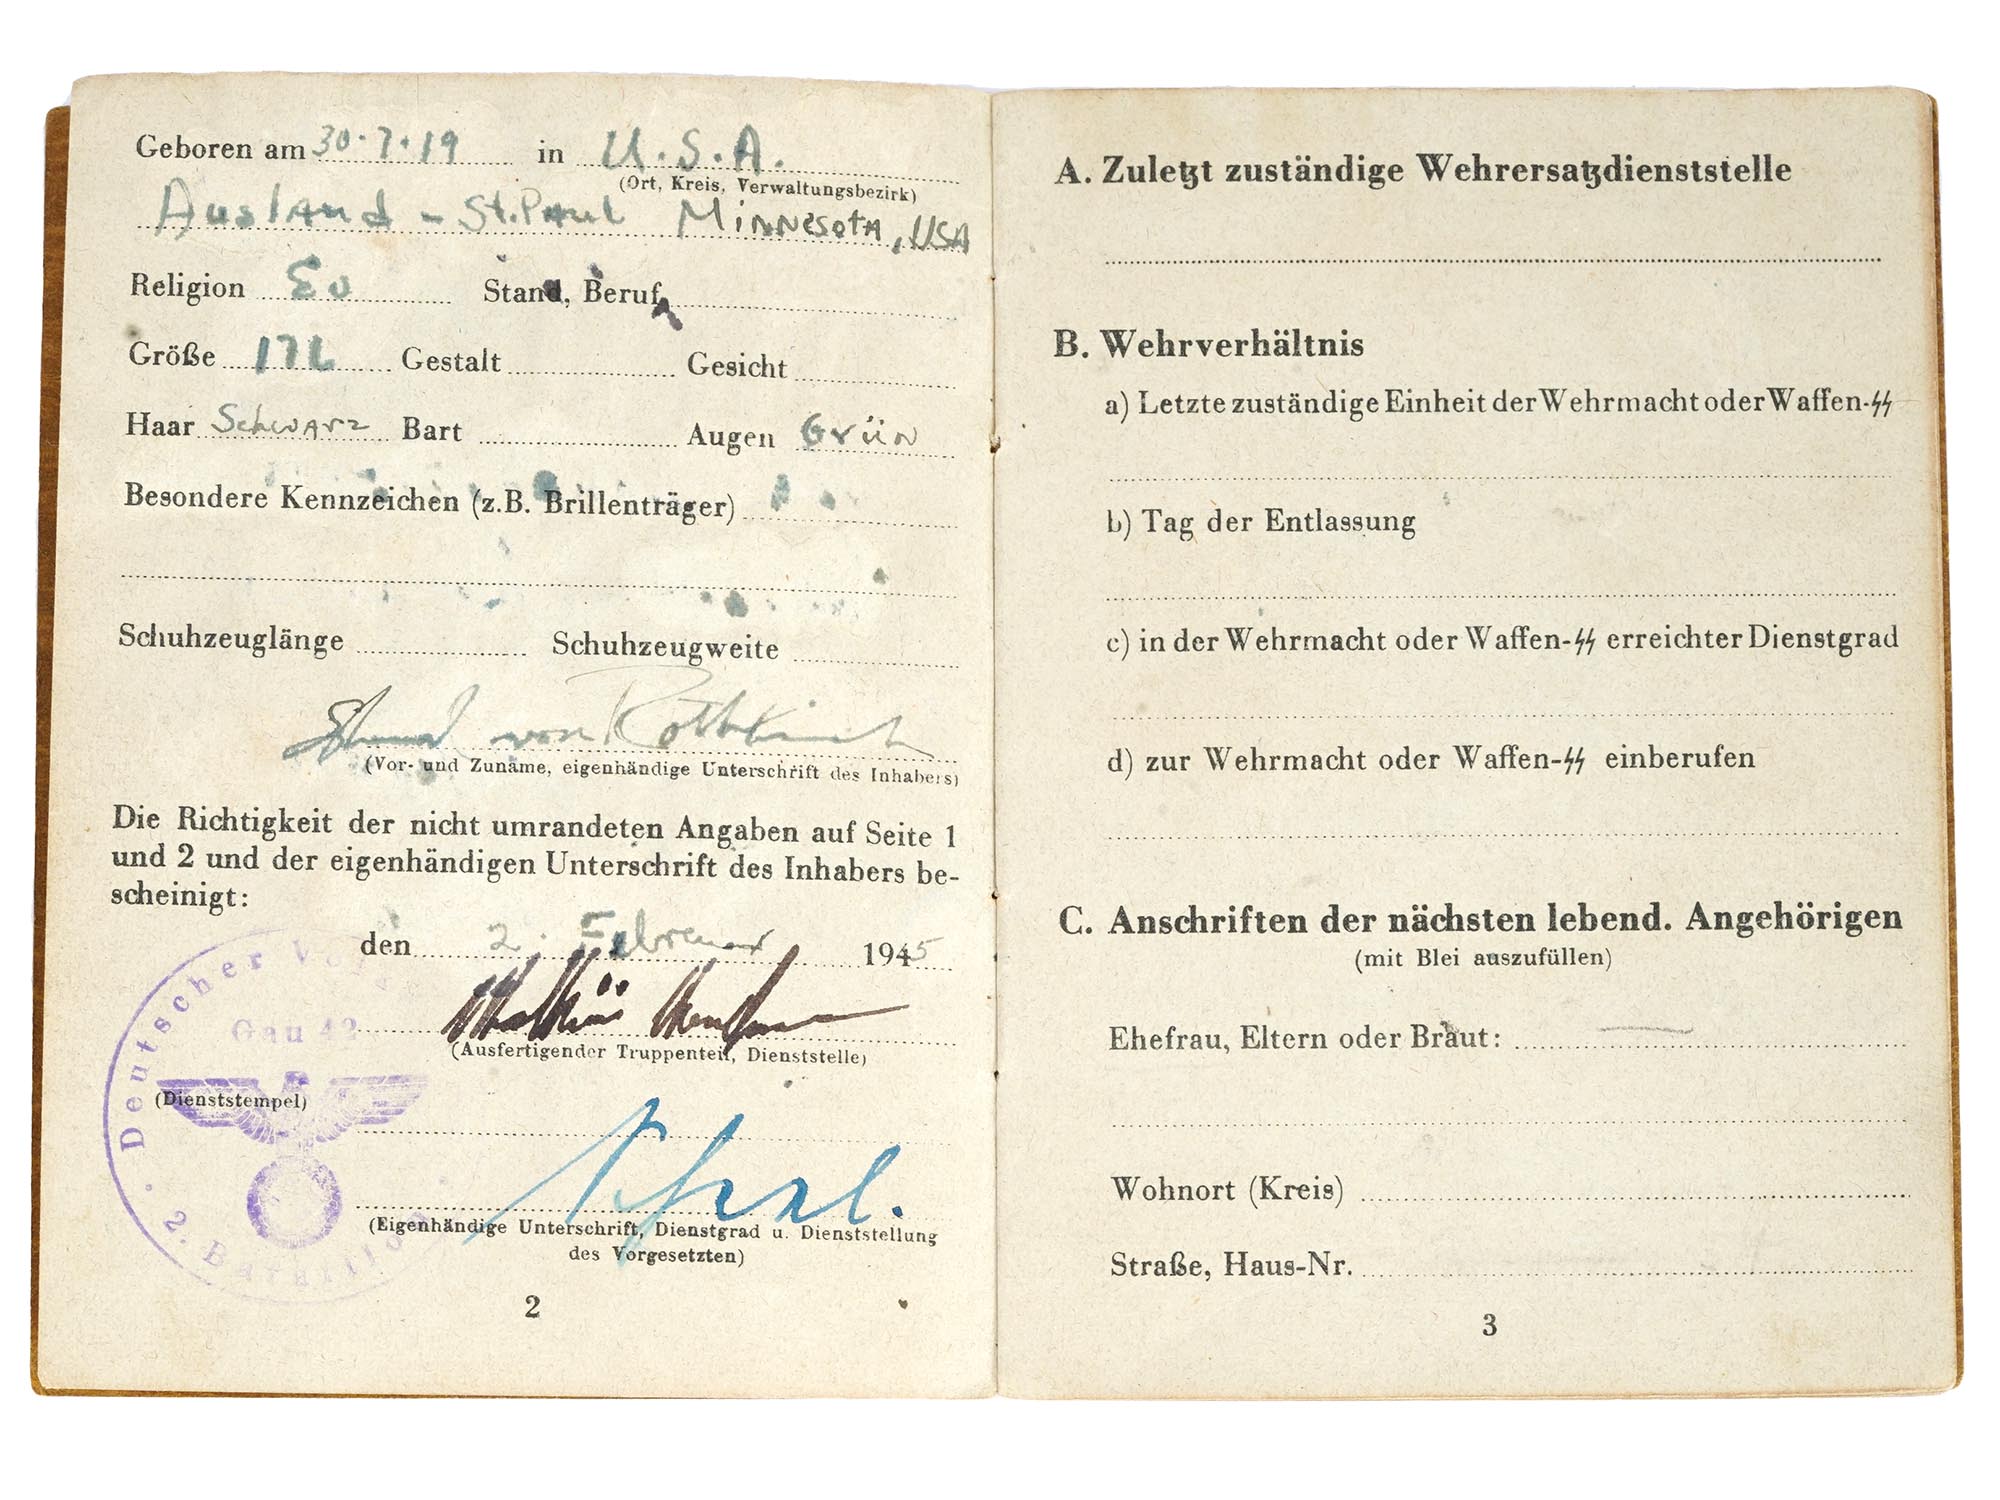 Geboren am 30.7.19 in U.S.A.
(Ort, Kreis, Verwaltungsbezirk)
Ausland - St. Paul Minnesota, USA
Religion Ev Stand, Beruf
Größe 172 Gestalt Gesicht
Haar Schwarz Bart Augen Grün
Besondere Kennzeichen (z.B. Brillenträger)
Schuhzeuglänge Schuhzeugweite
von
(Vor- und Zuname, eigenhändige Unterschrift des Inhabers)
Die Richtigkeit der nicht umrandeten Angaben auf Seite 1
und 2 und der eigenhändigen Unterschrift des Inhabers be-
scheinigt:
den 2. Februar 1945
(Ausfertigender Truppenteil, Dienststelle)
(Dienststempel)
Deutscher
Gau 42
2. Bataillon
(Eigenhändige Unterschrift, Dienstgrad u. Dienststellung
des Vorgesetzten)
2
A. Zuletzt zuständige Wehrersatzdienststelle
B. Wehrverhältnis
a) Letzte zuständige Einheit der Wehrmacht oder Waffen-ᛋᛋ
b) Tag der Entlassung
c) in der Wehrmacht oder Waffen-ᛋᛋ erreichter Dienstgrad
d) zur Wehrmacht oder Waffen-ᛋᛋ einberufen
C. Anschriften der nächsten lebend. Angehörigen
(mit Blei auszufüllen)
Ehefrau, Eltern oder Braut:
Wohnort (Kreis)
Straße, Haus-Nr.
3